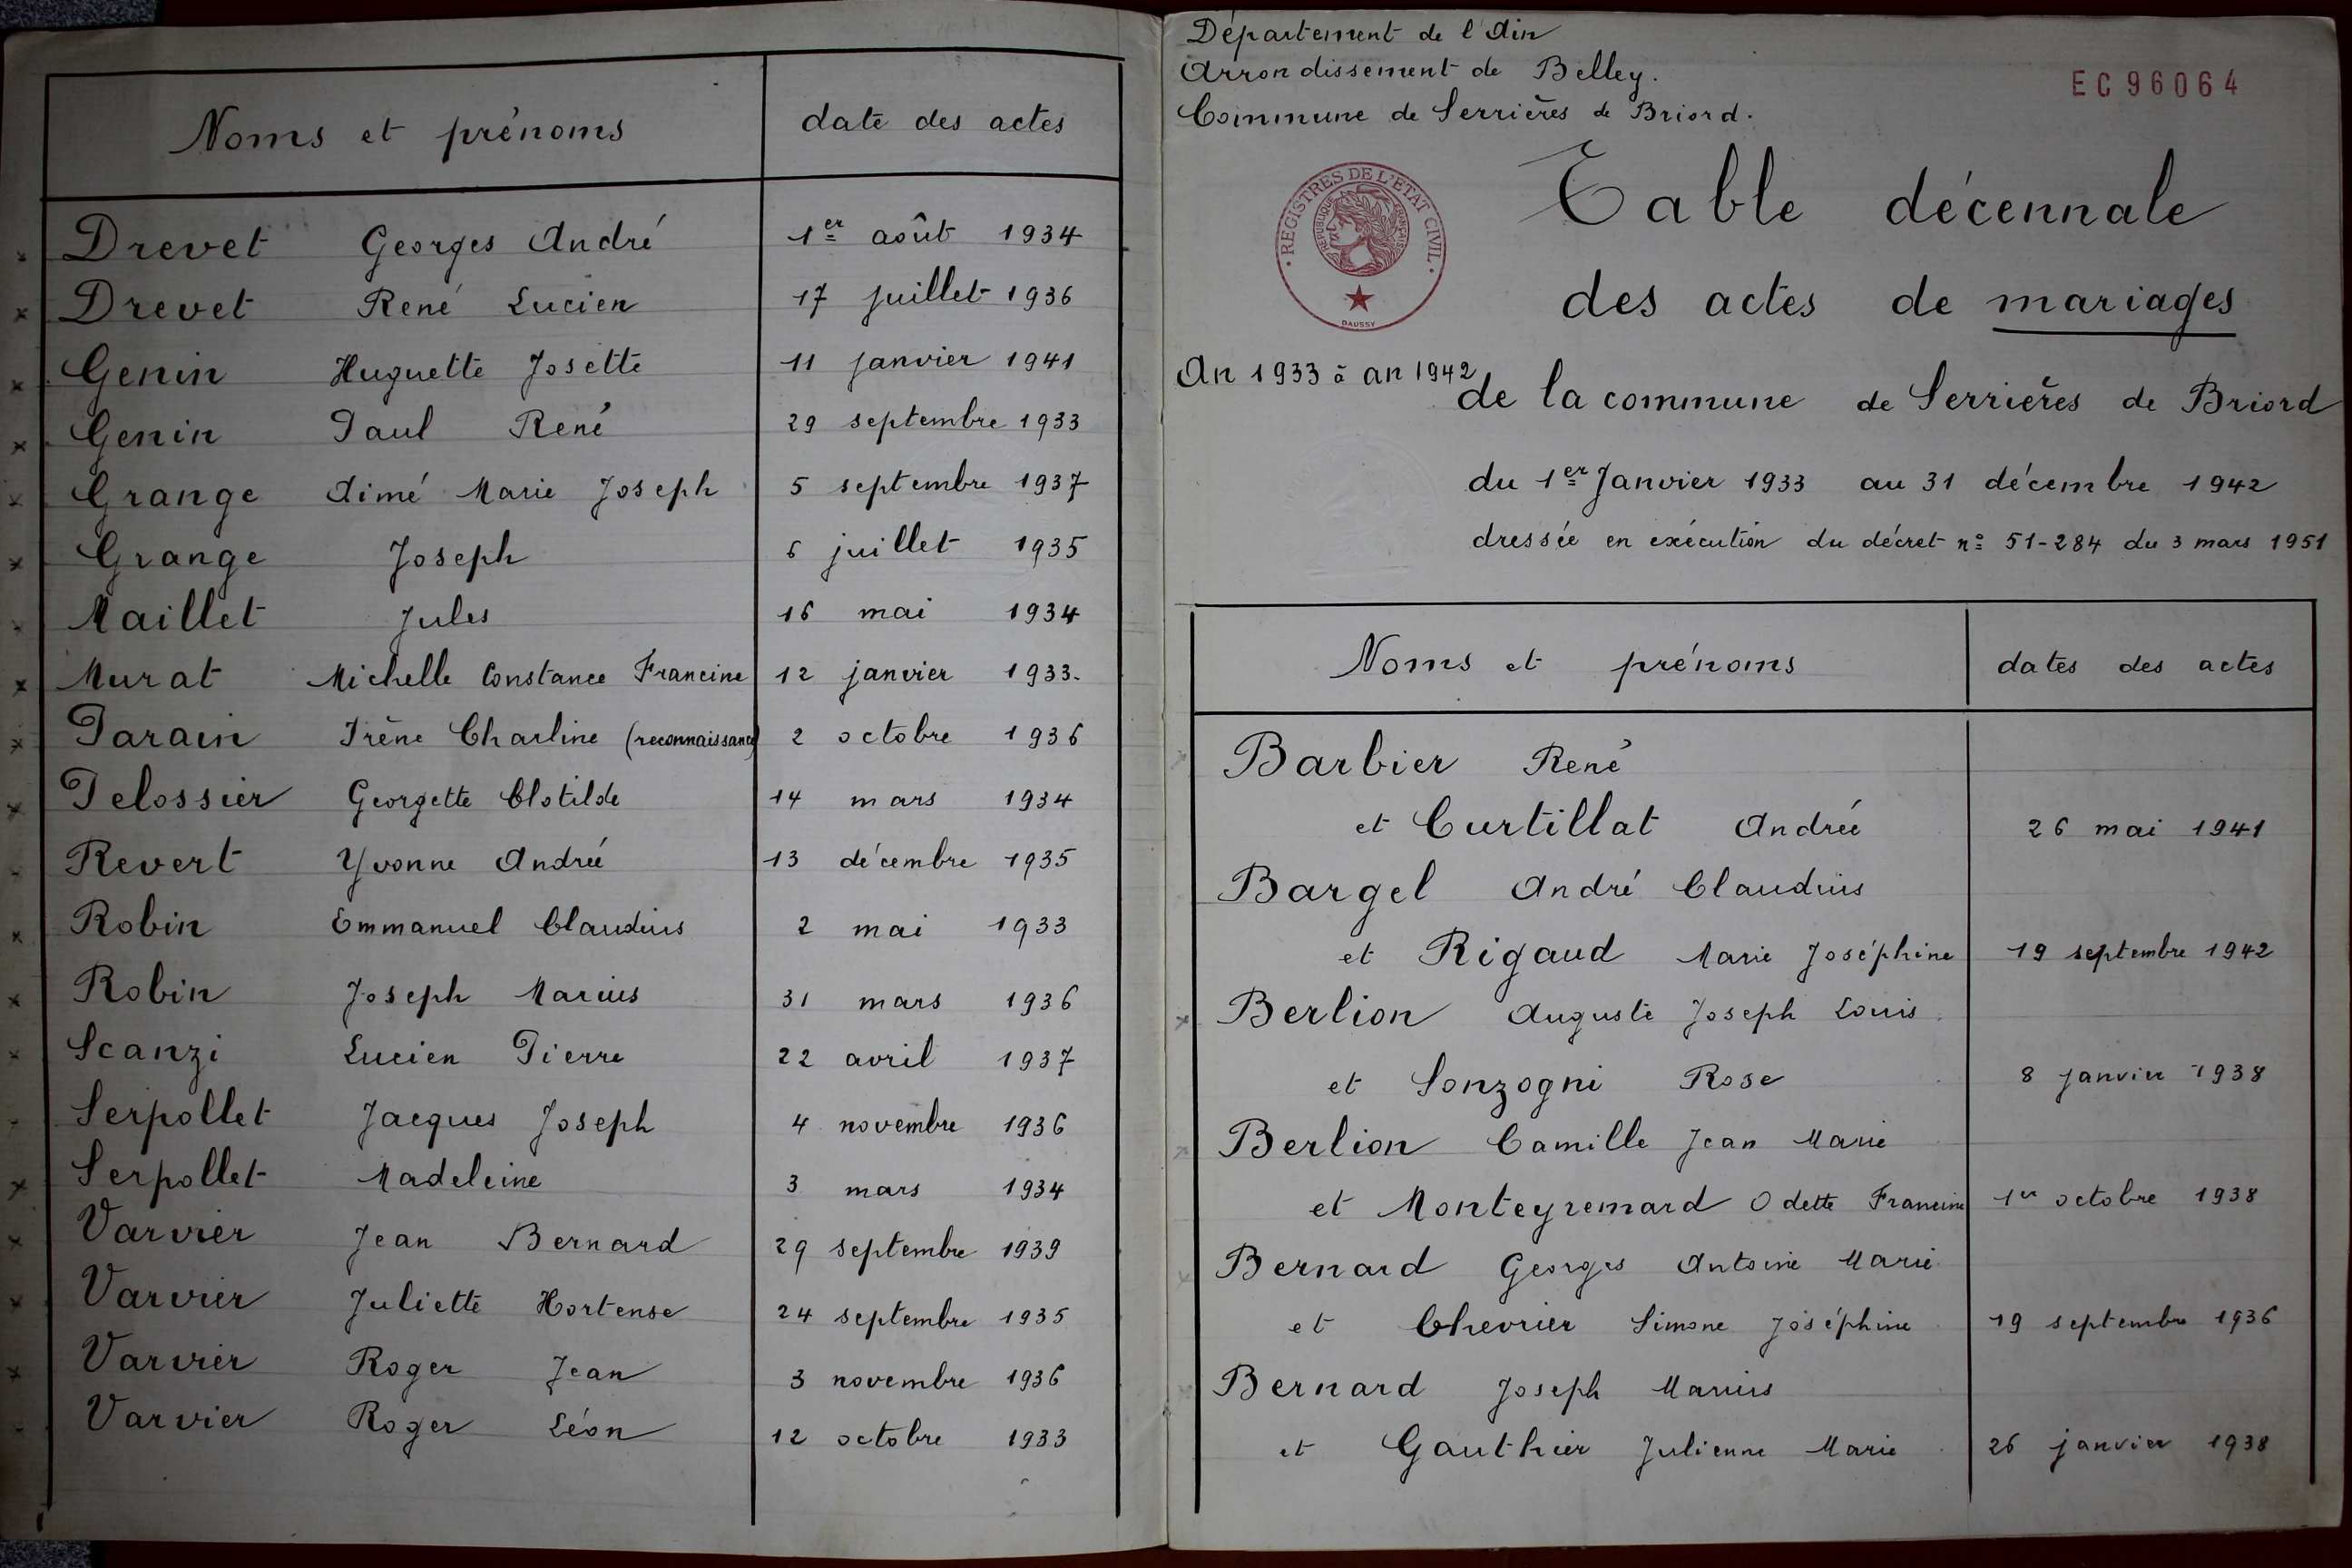 Noms et prénoms date des actes
Drevet Georges André 1er août 1934
Drevet René Lucien 17 juillet 1936
Genin Huguette Josette 11 janvier 1941
Genin Paul René 29 septembre 1933
Grange Aimé Marie Joseph 5 septembre 1937
Grange Joseph 6 juillet 1935
Maillet Jules 16 mai 1934
Murat Michelle Constance Francine 12 janvier 1933.
Parain Irène Charline (reconnaissance) 2 octobre 1936
Pelossier Georgette Clotilde 14 mars 1934
Revert Yvonne André 13 décembre 1935
Robin Emmanuel Claudius 2 mai 1933
Robin Joseph Marius 31 mars 1936
Scanzi Lucien Pierre 22 avril 1937
Serpollet Jacques Joseph 4 novembre 1936
Serpollet Madeleine 3 mars 1934
Varvier Jean Bernard 29 septembre 1939
Varvier Juliette Hortense 24 septembre 1935
Varvier Roger Jean 3 novembre 1936
Varvier Roger Léon 12 octobre 1933
Département de l'Ain
Arrondissement de Belley.
Commune de Serrières de Briord.
EC96064
REGISTRES DE L'ETAT CIVIL
REPUBLIQUE FRANÇAISE
DAUSSY
Table décennale
des actes de mariages
An 1933 à an 1942
de la commune de Serrières de Briord
du 1er Janvier 1933 au 31 décembre 1942
dressée en exécution du décret no 51-284 du 3 mars 1951
Noms et prénoms dates des actes
Barbier René
et Curtillat Andrée 26 mai 1941
Bargel André Claudius
et Rigaud Marie Joséphine 19 septembre 1942
Berlion Auguste Joseph Louis
et Sonzogni Rose 8 janvier 1938
Berlion Camille Jean Marie
et Monteyremard Odette Francine 1er octobre 1938
Bernard Georges Antoine Marie
et Chevrier Simone Joséphine 19 septembre 1936
Bernard Joseph Marius
et Gauthier Julienne Marie 26 janvier 1938